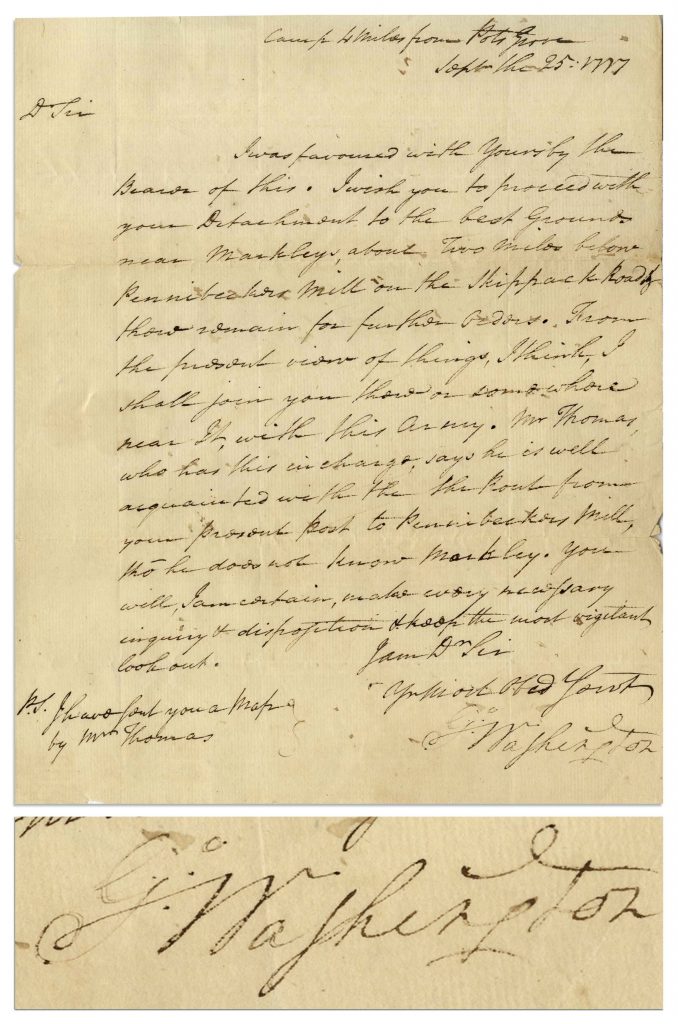 Camp 4 Miles from Pots Grove
Sept the 25: 1777
Dr Sir
I was favoured with Yours by the
Bearer of this. I wish you to proceed with
your Detachment to the best Grounds
near Markleys, about Two Miles below
Pennibeckers Mill on the Skippack Road &
there remain for further Orders. From
the present view of things, I think, I
shall join you there or somewhere
near It, with this Army. Mr Thomas,
who has this in charge, says he is well
acquainted with the the Rout from
your present Post to Pennibeckers Mill,
tho he does not know Markley. You
will, I am certain, make every necessary
inquiry & disposition & keep the most vigilant
look out.
I am Dr Sir
Yr Most Obed Servt
Go Washington
P.S. I have sent you a Map
by Mr Thomas
Go Washington